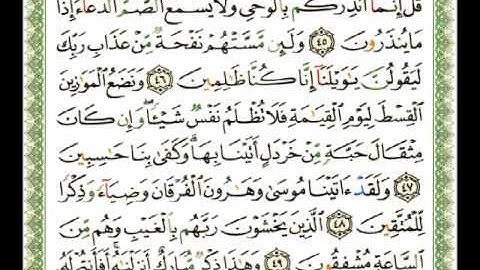 قُلْ إِنَّمَآ أُنذِرُكُم بِٱلْوَحْىِ وَلَا يَسْمَعُ ٱلصُّمُّ ٱلدُّعَآءَ إِذَا
مَا يُنذَرُونَ ٤٥ وَلَئِن مَّسَّتْهُمْ نَفْحَةٌ مِّنْ عَذَابِ رَبِّكَ
لَيَقُولُنَّ يَٰوَيْلَنَآ إِنَّا كُنَّا ظَٰلِمِينَ ٤٦ وَنَضَعُ ٱلْمَوَٰزِينَ
ٱلْقِسْطَ لِيَوْمِ ٱلْقِيَٰمَةِ فَلَا تُظْلَمُ نَفْسٌ شَيْـًٔا وَإِن كَانَ
مِثْقَالَ حَبَّةٍ مِّنْ خَرْدَلٍ أَتَيْنَا بِهَا وَكَفَىٰ بِنَا حَٰسِبِينَ
٤٧ وَلَقَدْ ءَاتَيْنَا مُوسَىٰ وَهَٰرُونَ ٱلْفُرْقَانَ وَضِيَآءً وَذِكْرًا
لِّلْمُتَّقِينَ ٤٨ ٱلَّذِينَ يَخْشَوْنَ رَبَّهُم بِٱلْغَيْبِ وَهُم مِّنَ
ٱلسَّاعَةِ مُشْفِقُونَ ٤٩ وَهَٰذَا ذِكْرٌ مُّبَارَكٌ أَنزَلْنَٰهُ أَفَأَنتُمْ لَهُۥ